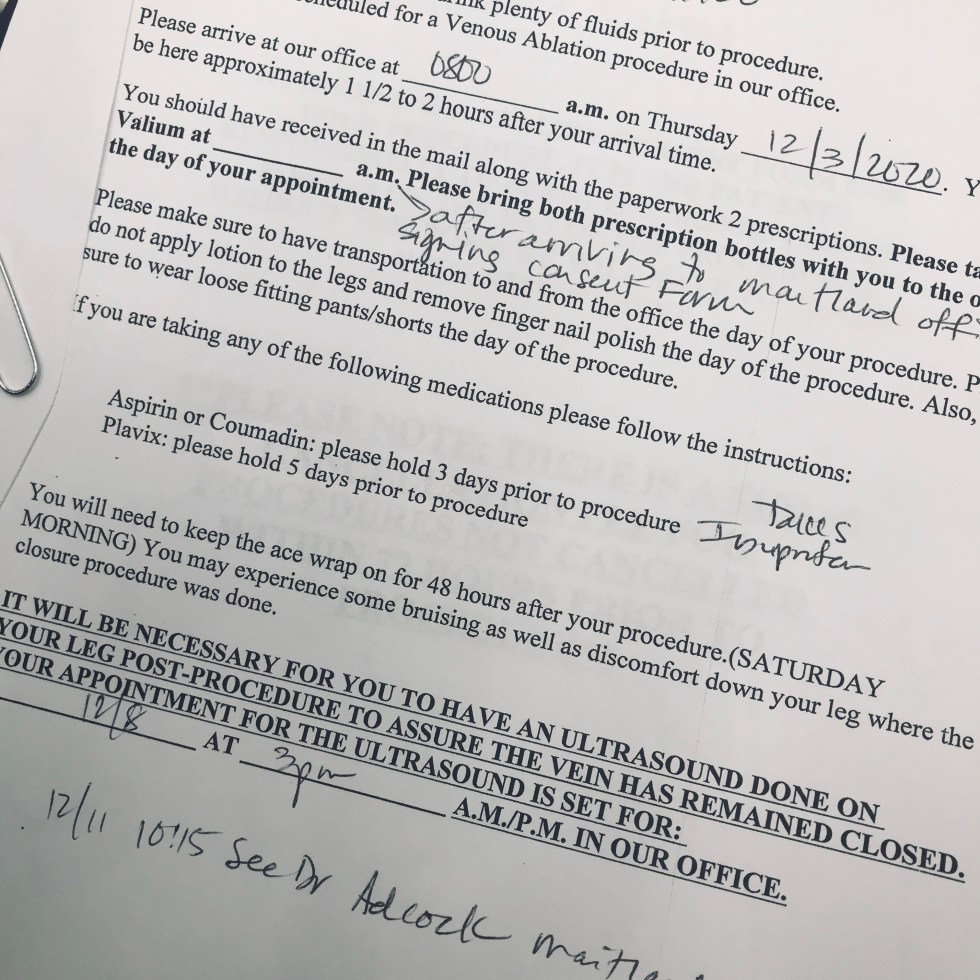 plenty of fluids prior to procedure.
scheduled for a Venous Ablation procedure in our office.
Please arrive at our office at 0800 a.m. on Thursday 12/3/2020. Y
be here approximately 1 1/2 to 2 hours after your arrival time.
You should have received in the mail along with the paperwork 2 prescriptions. Please ta
Valium at ________ a.m. Please bring both prescription bottles with you to the o
the day of your appointment.
>after arriving to maitland off
signing consent Form
Please make sure to have transportation to and from the office the day of your procedure. P
do not apply lotion to the legs and remove finger nail polish the day of the procedure. Also,
sure to wear loose fitting pants/shorts the day of the procedure.
If you are taking any of the following medications please follow the instructions:
Aspirin or Coumadin: please hold 3 days prior to procedure
Plavix: please hold 5 days prior to procedure
Takes
Ibuprofen
You will need to keep the ace wrap on for 48 hours after your procedure.(SATURDAY
MORNING) You may experience some bruising as well as discomfort down your leg where the
closure procedure was done.
IT WILL BE NECESSARY FOR YOU TO HAVE AN ULTRASOUND DONE ON
YOUR LEG POST-PROCEDURE TO ASSURE THE VEIN HAS REMAINED CLOSED.
YOUR APPOINTMENT FOR THE ULTRASOUND IS SET FOR:
12/8 AT 3pm A.M./P.M. IN OUR OFFICE.
12/11 10:15 See Dr Adcock maitla